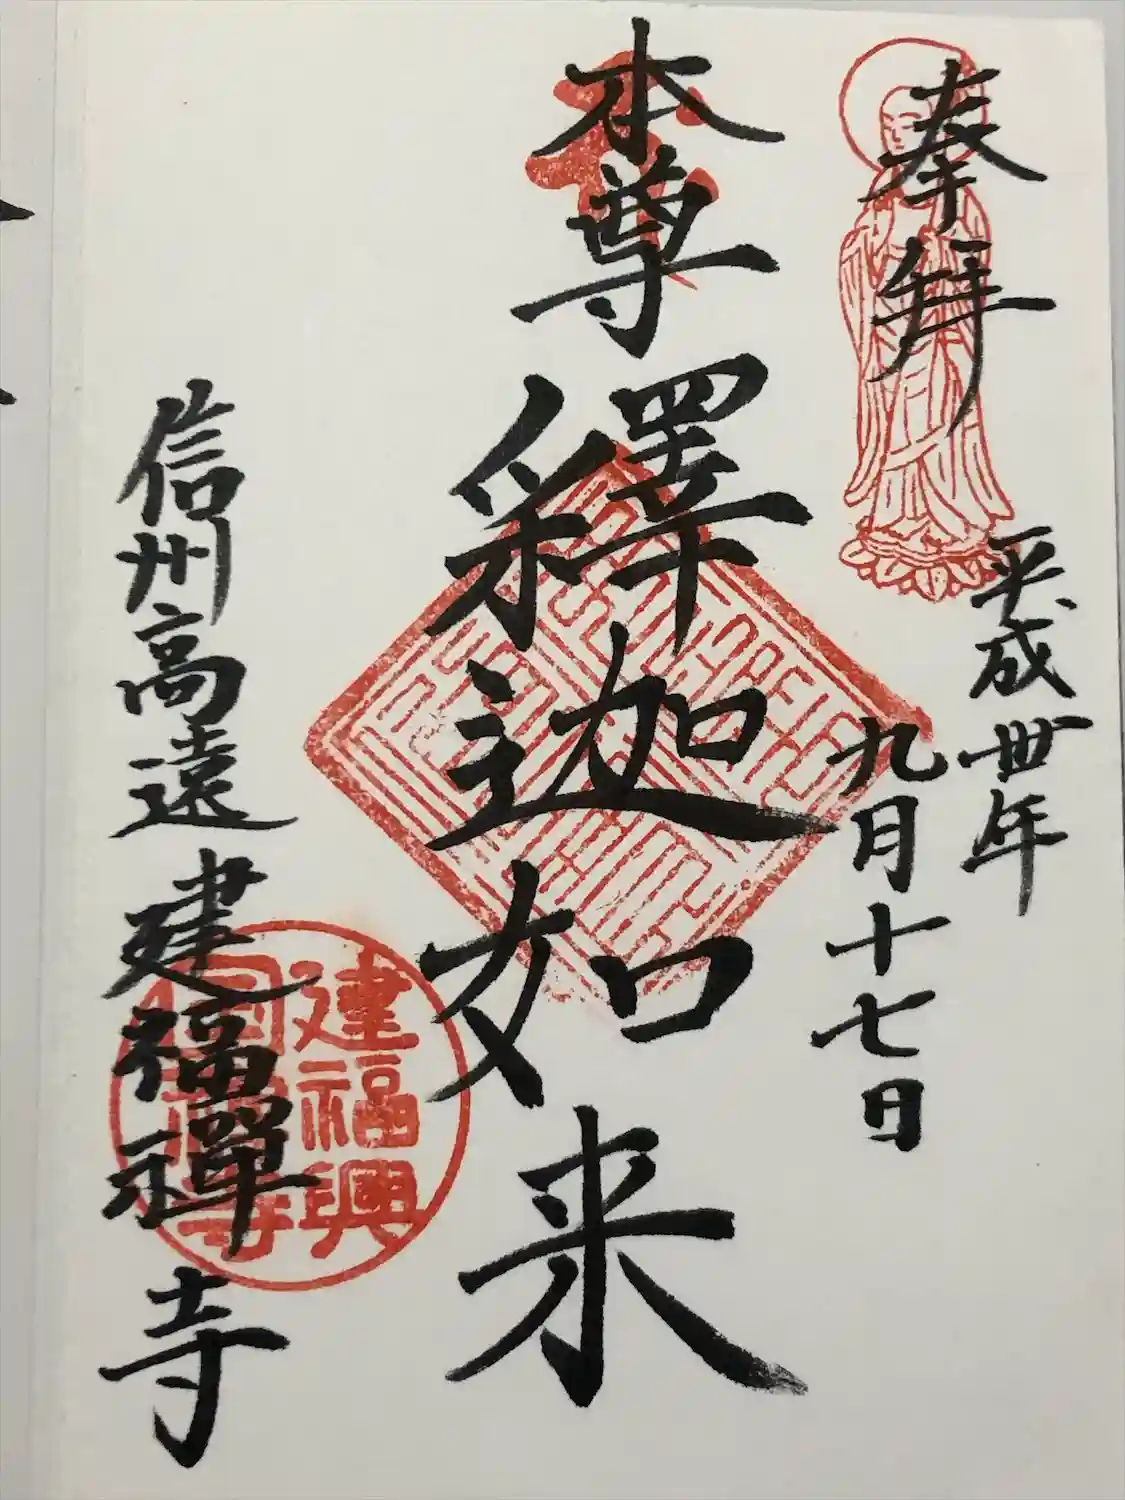 奉拜
平成丗年
九月十七日
本尊
釋迦如来
信州高遠建福禪寺
建福興
國禪寺